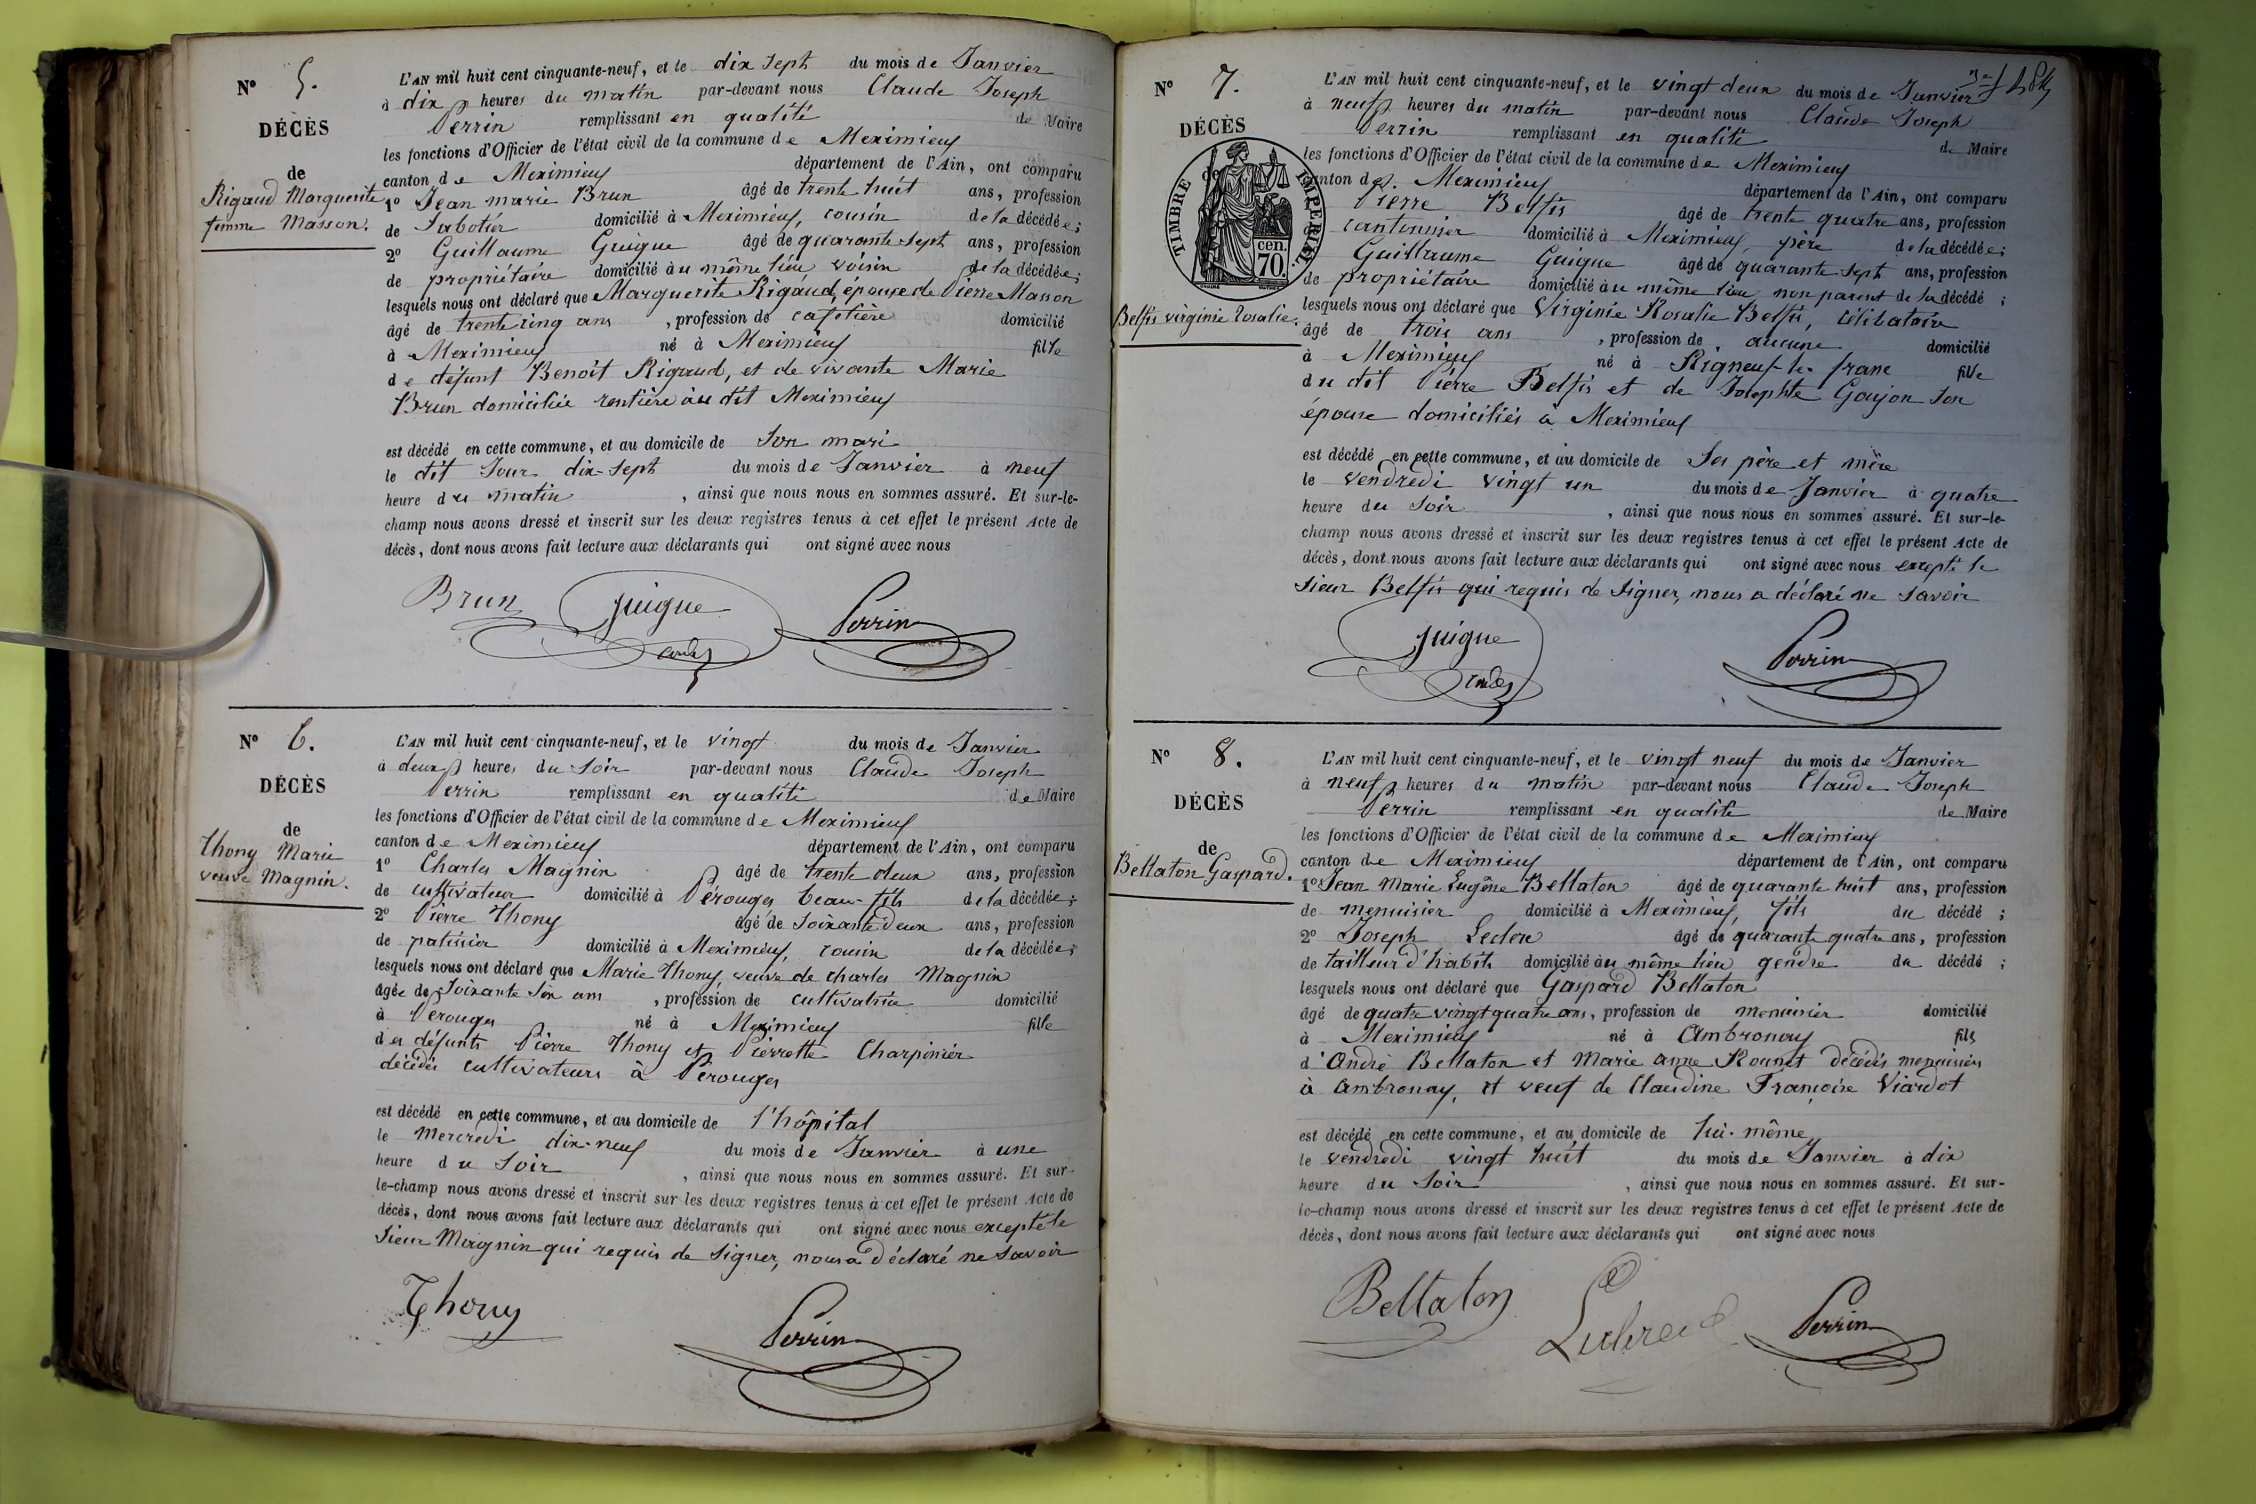 N° 5.
DÉCÈS
de
Rigaud Marguerite
femme Masson.
L'AN mil huit cent cinquante-neuf, et le dix sept du mois de Janvier
à dix heures du matin par-devant nous Claude Joseph
Perrin remplissant en qualité de Maire
les fonctions d'Officier de l'état civil de la commune de Meximieux
canton de Meximieux département de l'Ain, ont comparu
1° Jean marie Brun âgé de trente huit ans, profession
de Sabotier domicilié à Meximieux, cousin de la décédée;
2° Guillaume Guigue âgé de quarante sept ans, profession
de propriétaire domicilié au même lieu voisin de la décédée;
lesquels nous ont déclaré que Marguerite Rigaud, epouse de Pierre Masson
âgé de trente cinq ans , profession de cafetière domicilié
à Meximieux né à Meximieux fille
de défunt Benoît Rigaud, et de vivante Marie
Brun domiciliée rentière au dit Meximieux
est décédé en cette commune, et au domicile de Son mari
le dit Jour dix-sept du mois de Janvier à neuf
heure du matin , ainsi que nous nous en sommes assuré. Et sur-le-
champ nous avons dressé et inscrit sur les deux registres tenus à cet effet le présent Acte de
décès, dont nous avons fait lecture aux déclarants qui ont signé avec nous
Brun Guigue Perrin
N° 6.
DÉCÈS
de
Thony Marie
veuve Magnin.
L'AN mil huit cent cinquante-neuf, et le vingt du mois de Janvier
à deux heures du Soir par-devant nous Claude Joseph
Perrin remplissant en qualité de Maire
les fonctions d'Officier de l'état civil de la commune de Meximieux
canton de Meximieux département de l'Ain, ont comparu
1° Charles Magnin âgé de trente deux ans, profession
de cultivateur domicilié à Pérouges beau-fils de la décédée;
2° Pierre Thony âgé de Soixante deux ans, profession
de patissier domicilié à Meximieux, cousin de la décédée;
lesquels nous ont déclaré que Marie Thony, veuve de charles Magnin
âgée de Soixante Six ans , profession de cultivatrice domicilié
à Pérouges né à Meximieux fille
des défunts Pierre Thony et Pierrette Charpinier
décédés cultivateurs à Pérouges
est décédé en cette commune, et au domicile de l'hôpital
le Mercredi dix-neuf du mois de Janvier à une
heure du Soir , ainsi que nous nous en sommes assuré. Et sur-
le-champ nous avons dressé et inscrit sur les deux registres tenus à cet effet le présent Acte de
décès, dont nous avons fait lecture aux déclarants qui ont signé avec nous excepté le
Sieur Magnin qui requis de Signer, nous a déclaré ne Savoir
Thony Perrin
N° 7.
DÉCÈS
de
TIMBRE IMPERIAL
cen.
70.
Belfis virginie Rosalie.
L'AN mil huit cent cinquante-neuf, et le vingt deux du mois de Janvier
à neuf heures du matin par-devant nous Claude Joseph
Perrin remplissant en qualité de Maire
les fonctions d'Officier de l'état civil de la commune de Meximieux
canton de Meximieux département de l'Ain, ont comparu
Pierre Belfis âgé de trente quatre ans, profession
cantonnier domicilié à Meximieux père de la décédée;
Guillaume Guigue âgé de quarante sept ans, profession
de propriétaire domicilié au même lieu non parent de la décédé ;
lesquels nous ont déclaré que Virginie Rosalie Belfis, célibataire
âgé de trois ans , profession de aucune domicilié
à Meximieux né à Rigneux-le-franc fille
du dit Pierre Belfis et de Josephte Goujon Son
épouse domiciliés à Meximieux
est décédé en cette commune, et au domicile de Ses père et mère
le Vendredi vingt un du mois de Janvier à quatre
heure du Soir , ainsi que nous nous en sommes assuré. Et sur-le-
champ nous avons dressé et inscrit sur les deux registres tenus à cet effet le présent Acte de
décès, dont nous avons fait lecture aux déclarants qui ont signé avec nous excepté le
Sieur Belfis qui requis de Signer, nous a déclaré ne Savoir
Guigue Perrin
N° 8.
DÉCÈS
de
Bellaton Gaspard.
L'AN mil huit cent cinquante-neuf, et le vingt neuf du mois de Janvier
à neuf heures du matin par-devant nous Claude Joseph
Perrin remplissant en qualité de Maire
les fonctions d'Officier de l'état civil de la commune de Meximieux
canton de Meximieux département de l'Ain, ont comparu
1° Jean Marie Eugène Bellaton âgé de quarante huit ans, profession
de menuisier domicilié à Meximieux, fils du décédé ;
2° Joseph Leclerc âgé de quarante quatre ans, profession
de tailleur d'habits domicilié au même lieu gendre du décédé ;
lesquels nous ont déclaré que Gaspard Bellaton
âgé de quatre vingt quatre ans, profession de menuisier domicilié
à Meximieux né à Ambronay fils
d'André Bellaton et Marie Anne Rounet décédés menuisiers
à Ambronay, et veuf de Claudine Françoise Viardot
est décédé en cette commune, et au domicile de lui-même
le vendredi vingt huit du mois de Janvier à dix
heure du Soir , ainsi que nous nous en sommes assuré. Et sur-
le-champ nous avons dressé et inscrit sur les deux registres tenus à cet effet le présent Acte de
décès, dont nous avons fait lecture aux déclarants qui ont signé avec nous
Bellaton Leclerc Perrin